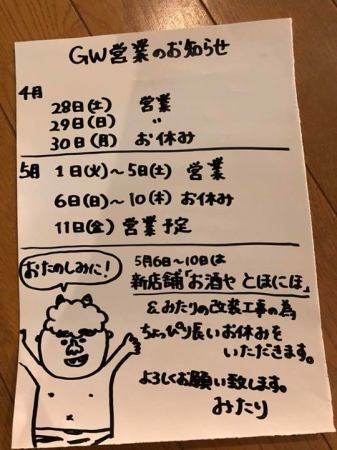 GW営業のお知らせ
4月
28日(土) 営業
29日(日) 〃
30日(月) お休み
5月 1日(火)〜5日(土) 営業
6日(日)〜10(木) お休み
11日(金) 営業予定
おたのしみに!
5月6日〜10日は
新店舗「お酒や とほにほ」
&みたりの改装工事の為、
ちょっぴり長いお休みを
いただきます。
よろしくお願い致します。
みたり